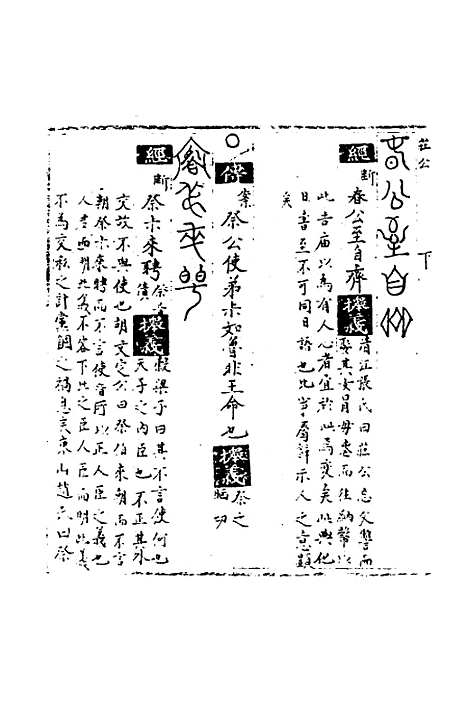 莊公 下
春公至自齊
經 斷 春公至自齊 據義 清江張氏曰莊公忘父讐而
娶其女冒母喪而往納幣以
此告廟以為有人心者宜於此為變矣此與他
日書至不可同日語也比事屬辭示人之意顯
矣
傳 案祭公使弟叔如魯非王命也 據義 祭之
祭叔來聘
經 斷 祭叔來聘 據義 穀梁子曰其不言使何也
天子之內臣也不正其外
交故不與使也胡文定公曰祭伯來朝而不言
朝祭叔來聘而不言使音所以正人臣之義也
人君而明此義不容下比之臣人臣而明此義
不為交私之計黨錮之禍息矣東山趙氏曰祭